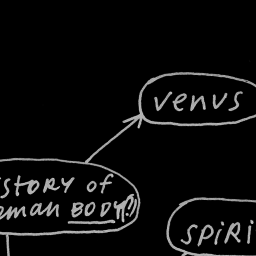 venus
story of
man BODY(!)
SPIRI